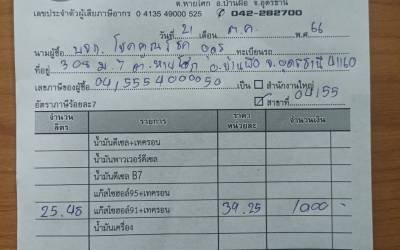 ต.หายโศก อ.บ้านผือ จ.อุดรธานี
เลขประจำตัวผู้เสียภาษีอากร 0 4135 49000 525 042-282700
วันที่ 21 เดือน ต.ค. พ.ศ. 66
นามผู้ซื้อ บจก. โชคคูณโชค อุดร ทะเบียนรถ
ที่อยู่ 308 ม.7 ต.หายโศก อ.บ้านผือ จ.อุดรธานี 41160
เลขภาษีของผู้ซื้อ เป็น สำนักงานใหญ่
อัตราภาษีร้อยละ7 สาขาที่ 04155
จำนวน ลิตร รายการ ราคา หน่วยละ จำนวนเงิน
น้ำมันดีเซล+เทครอน
น้ำมันพาวเวอร์ดีเซล
น้ำมันดีเซล B7
แก๊สโซฮอล์95+เทครอน
25.48 แก๊สโซฮอล์91+เทครอน 39.25 1000 -
น้ำมันเครื่อง